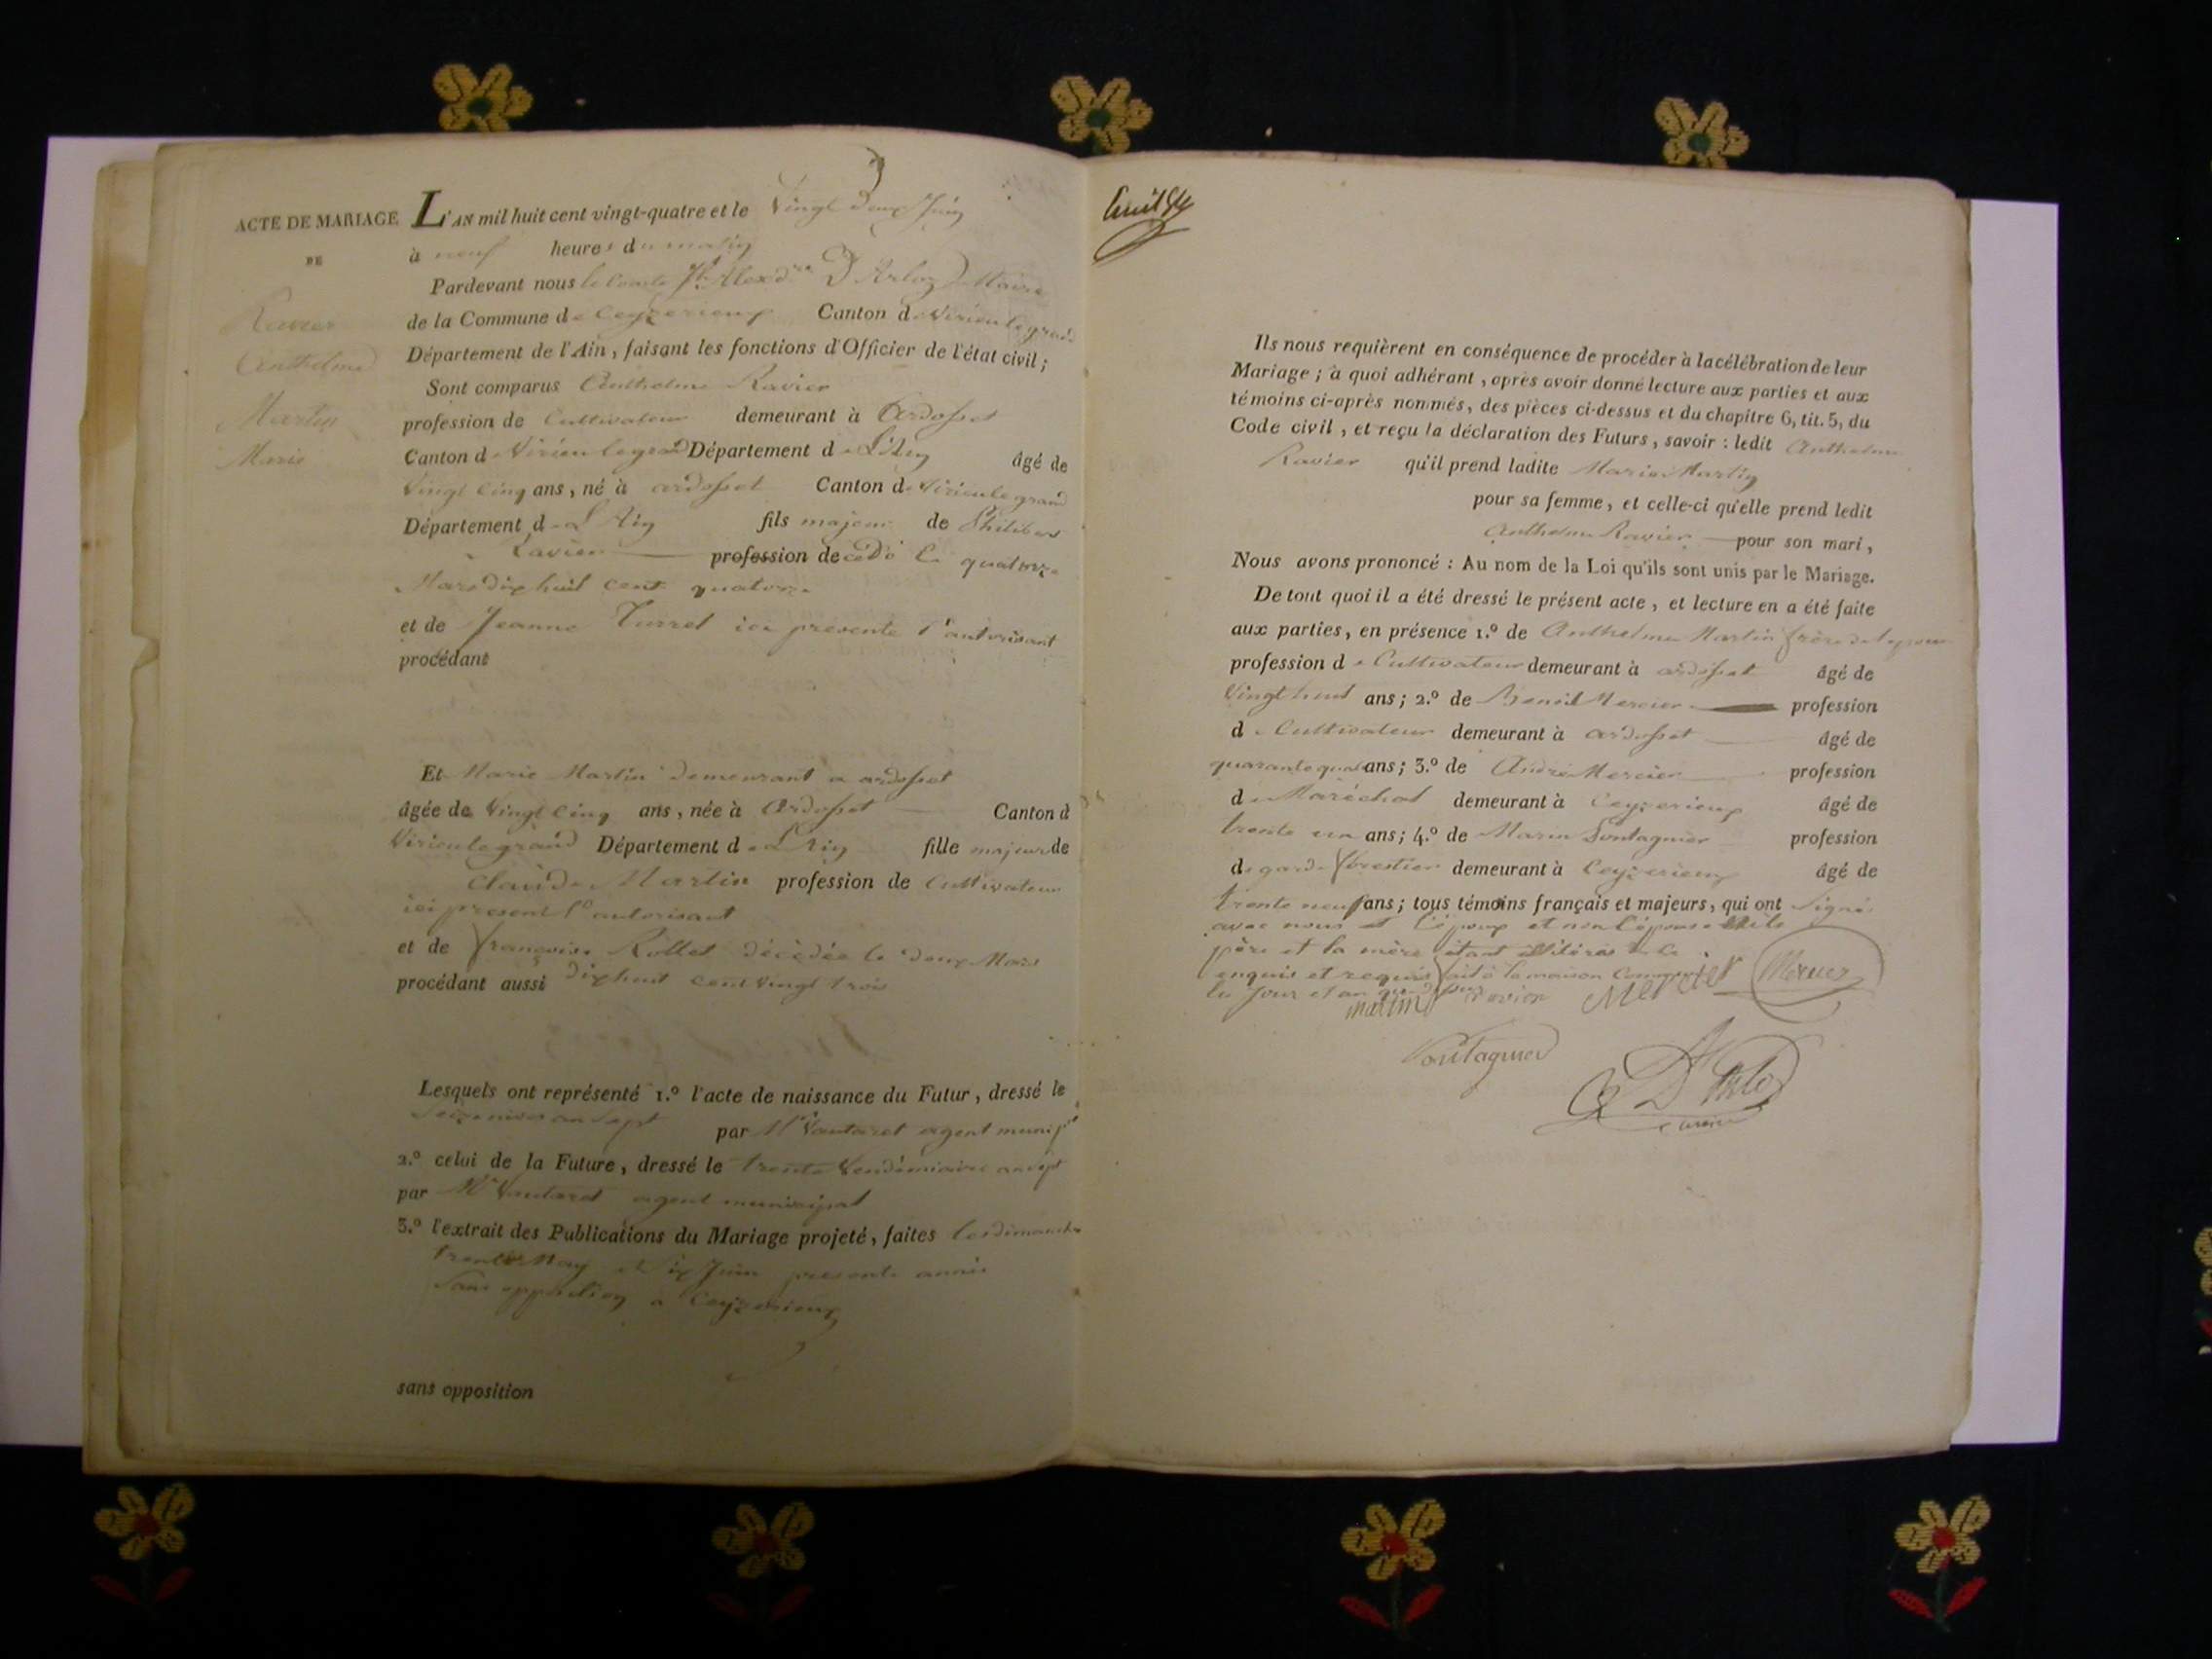 ACTE DE MARIAGE
DE
Ravier
Anthelme
Martin
Marie
L'AN mil huit cent vingt-quatre et le Vingt deux Juin
à neuf heures du matin
Pardevant nous le Comte Jh Alexdre D'Arloz Maire
de la Commune de Ceyzerieux Canton de Virieu le grand
Département de l'Ain, faisant les fonctions d'Officier de l'état civil;
Sont comparus Anthelme Ravier
profession de Cultivateur demeurant à Ardosset
Canton de Virieu le grand Département de L'Ain âgé de
Vingt Cinq ans, né à ardosset Canton de Virieu le grand
Département de L'Ain fils majeur de Philibert
Ravier profession decedé le quatorze
Mars dix huit cent quatorze
et de Jeanne Turrel ici presente l'autorisant
procédant
Et Marie Martin demeurant a ardosset
âgée de Vingt Cinq ans, née à Ardosset Canton d
Virieu le grand Département de L'Ain fille majeur de
Claude Martin profession de Cultivateur
ici present l'autorisant
et de françoise Rollet décédée le deux Mars
procédant aussi dix huit cent vingt trois
Lesquels ont représenté 1.° l'acte de naissance du Futur, dressé le
Seize nivose an Sept par Mr Vautaret agent munipl
2.° celui de la Future, dressé le trente Vendémiaire an sept
par Mr Vautaret agent municipal
3.° l'extrait des Publications du Mariage projeté, faites les dimanches
trente May et Six Juin presente année
Sans opposition a Ceyzerieux
sans opposition
Ils nous requièrent en conséquence de procéder à la célébration de leur
Mariage; à quoi adhérant, après avoir donné lecture aux parties et aux
témoins ci-après nommés, des pièces ci-dessus et du chapitre 6, tit. 5, du
Code civil, et reçu la déclaration des Futurs, savoir: ledit Anthelme
Ravier qu'il prend ladite Marie Martin
pour sa femme, et celle-ci qu'elle prend ledit
Anthelme Ravier pour son mari,
Nous avons prononcé: Au nom de la Loi qu'ils sont unis par le Mariage.
De tout quoi il a été dressé le présent acte, et lecture en a été faite
aux parties, en présence 1.° de Anthelme Martin frère de lepouse
profession de Cultivateur demeurant à ardosset âgé de
Vingt huit ans; 2.° de Benoit Mercier profession
de Cultivateur demeurant à ardosset âgé de
quarante quatre ans; 3.° de André Mercier profession
de Maréchal demeurant à Ceyzerieux âgé de
trente un ans; 4.° de Marin Pontagnier profession
de garde forestier demeurant à Ceyzerieux âgé de
trente neuf ans; tous témoins français et majeurs, qui ont Signé
avec nous et l'époux et non l'épouse
père et la mère étant illitérés de ce
enquis et requis fait à la maison Commune
les jour et an que dessus
martin ravier Mercier Mercier
Pontagnier
D'Arloz